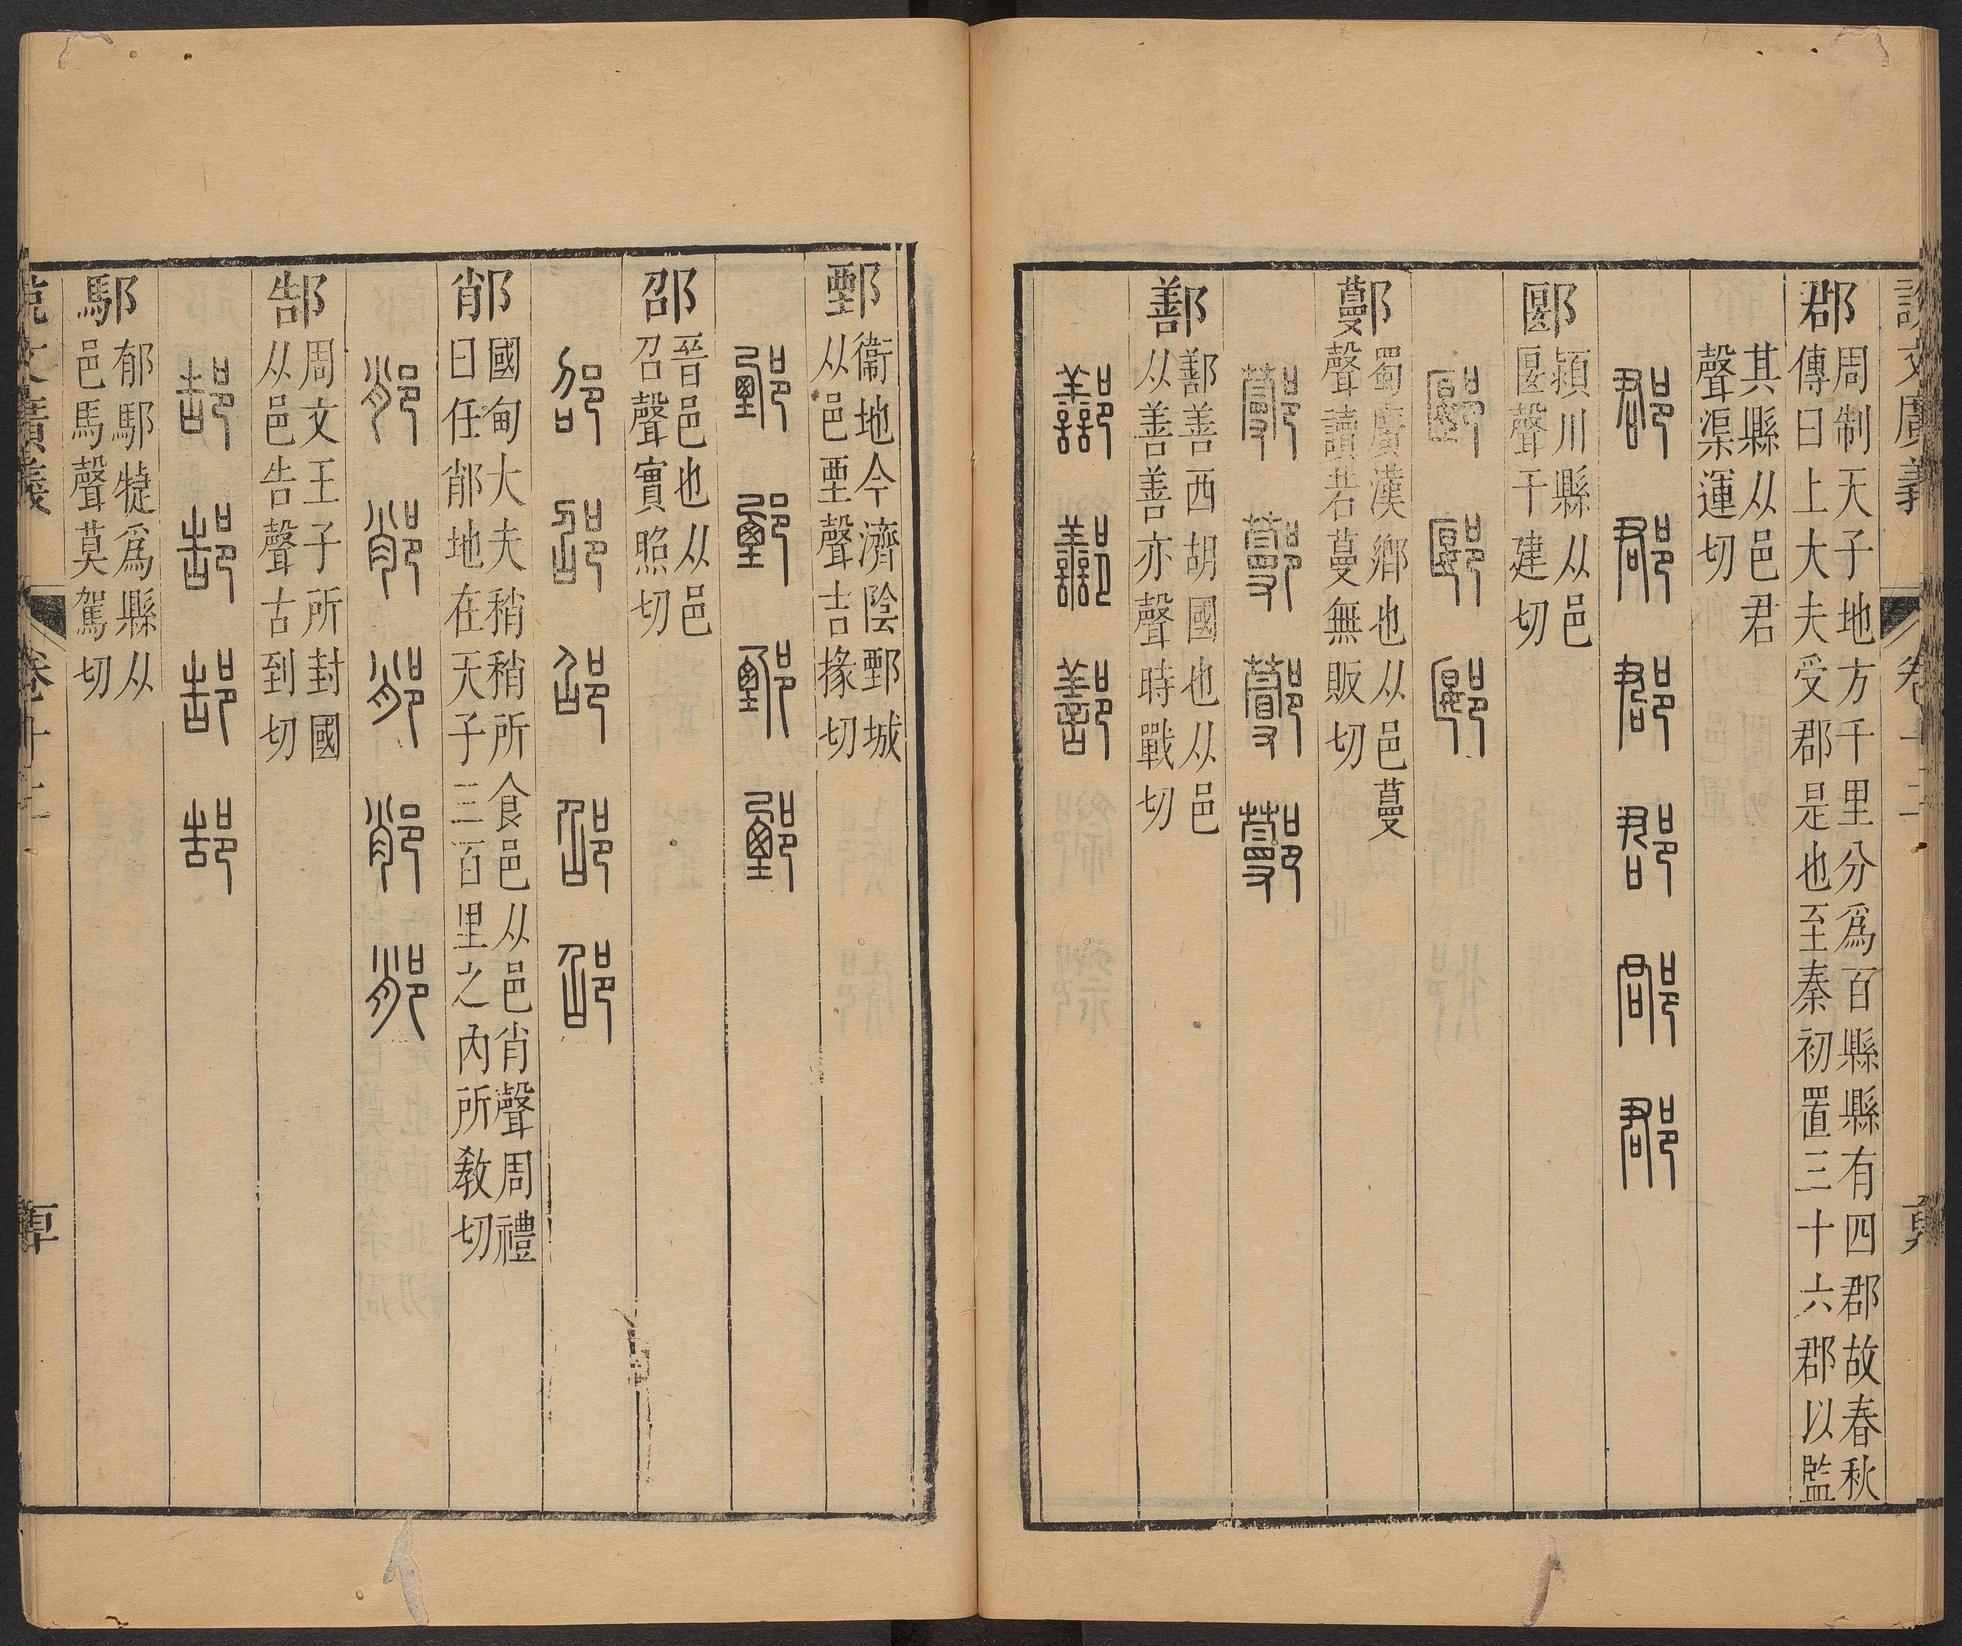 說文廣義
卷十二
郡
周制天子地方千里分爲百縣縣有四郡故春秋
傳曰上大夫受郡是也至秦初置三十六郡以監
其縣从邑君
聲渠運切
郡郡郡郡郡郡
郾
潁川縣从邑
匽聲于建切
郾郾郾
鄤
蜀廣漢鄉也从邑蔓
蔓聲讀若蔓無販切
鄯
鄯善西胡國也从邑
从善善亦聲時戰切
鄯鄯鄯
鄄
衞地今濟陰鄄城
从邑垔聲吉掾切
鄄鄄鄄鄄
邵
晉邑也从邑
召聲寔照切
邵邵邵邵邵
郙
國甸大夫稍稍所食邑从邑肖聲周禮
曰任郙地在天子三百里之內所敎切
郜
周文王子所封國
从邑告聲古到切
郜郜郜郜
䣕
郁䣕犍爲縣从
邑馬聲莫駕切
說文廣義
卷十二